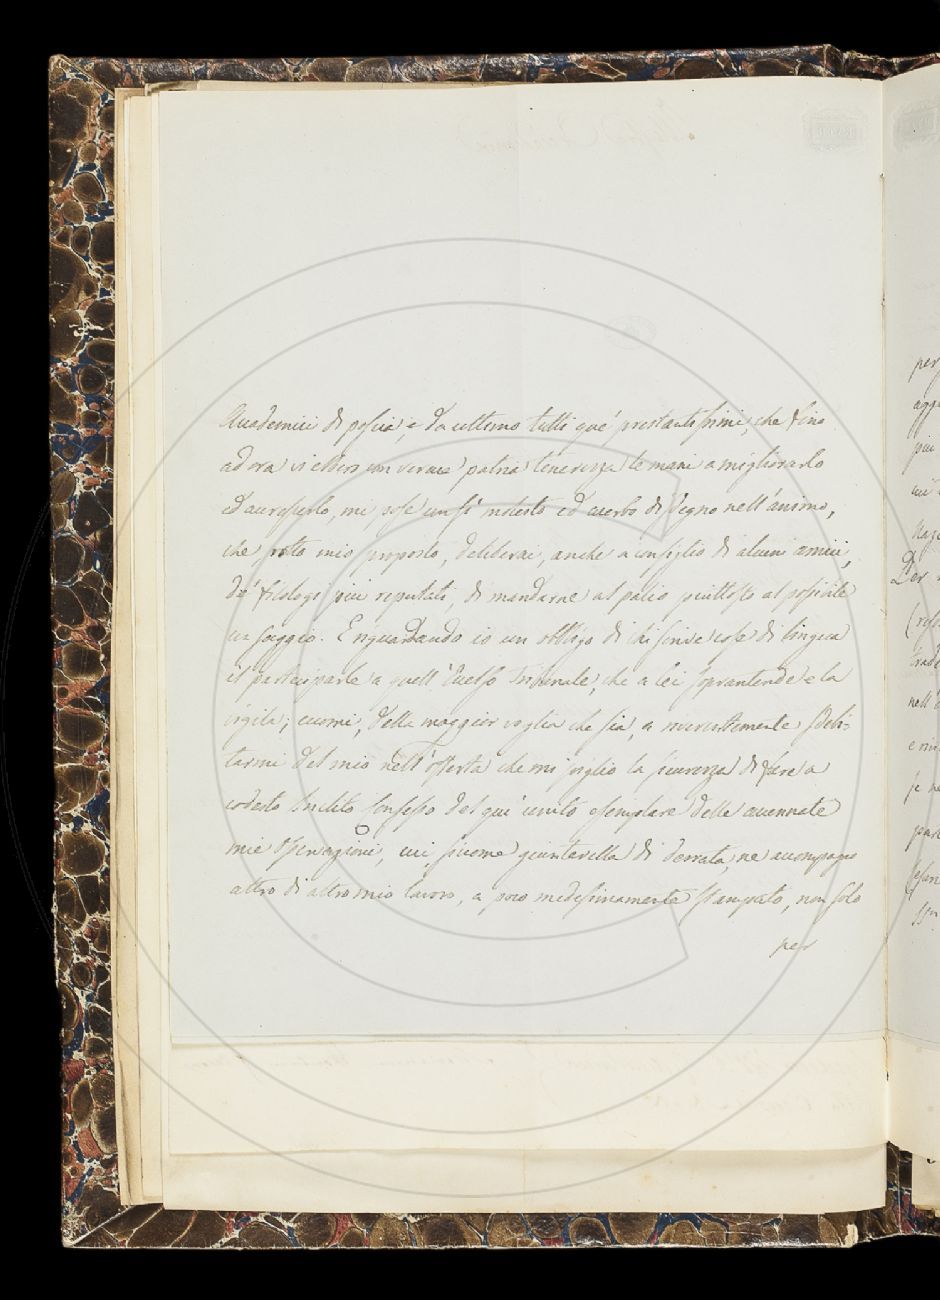 Accademici di poscia, e da ultimo tutti que' prestantissimi, che fino
ad ora vi ebbero con verace patria tenerezza le mani a migliorarlo
ed accrescerlo, mi pose un sì molesto ed acerbo disdegno nell'animo,
che rotto mio proposto, deliberai, anche a consiglio di alcuni amici,
de' filologi più reputati, di mandarne al palio piuttosto al possibile
un saggio. E riguardando io un obbligo di chi scrive cose di lingua
il participarle a quell'Eccelso Tribunale, che a lei soprantende e la
vigila; eccomi, della maggior voglia che sia, a sdebi-
tarmi del mio nell'offerta che mi piglio la sicurezza di fare a
codesto Inclito Consesso del qui unito esemplare delle accennate
mie Osservazioni, cui, siccome giunterella di derrata, ne accompagno
altro di altro mio lavoro, a poco medesimamente stampato, non solo
per
per
più
Per
nell'